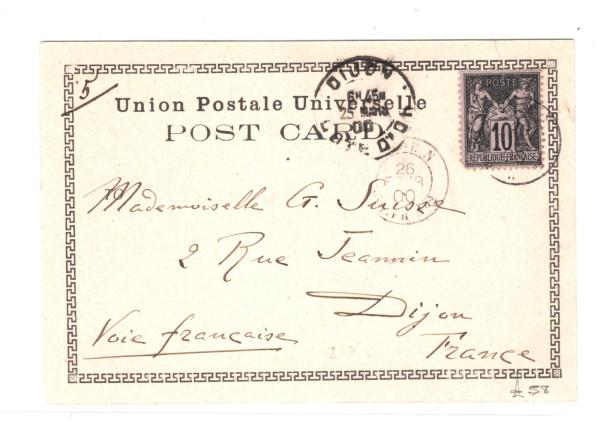 5
Union Postale Universelle
POST CARD
DIJON
6H 45M
25 MARS
00
COTE D'OR
POSTE
10
REPUBLIQUE FRANÇAISE
26
Mademoiselle G. Suisse
2 Rue Jeannin
Dijon
Voie française
France
58